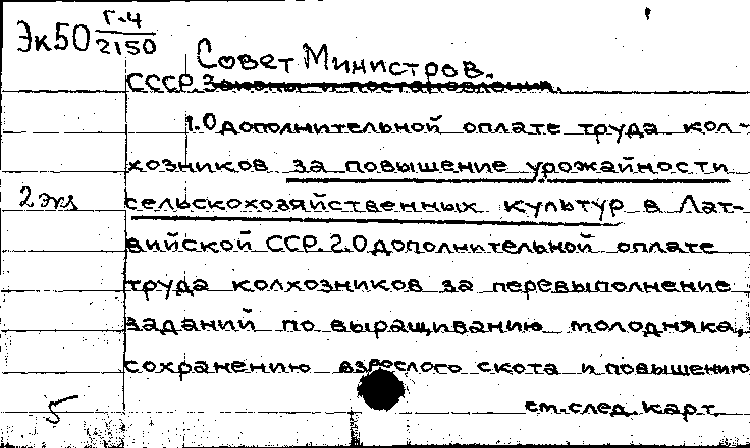 Эк50 Г-4/2150
Совет Министров.
СССР. Законы и постановления.
1. О дополнительной оплате труда кол-
хозников за повышение урожайности
2 экз сельскохозяйственных культур в Лат-
вийской ССР. 2. О дополнительной оплате
труда колхозников за перевыполнение
заданий по выращиванию молодняка,
сохранению взрослого скота и повышению
5 см. след. карт.